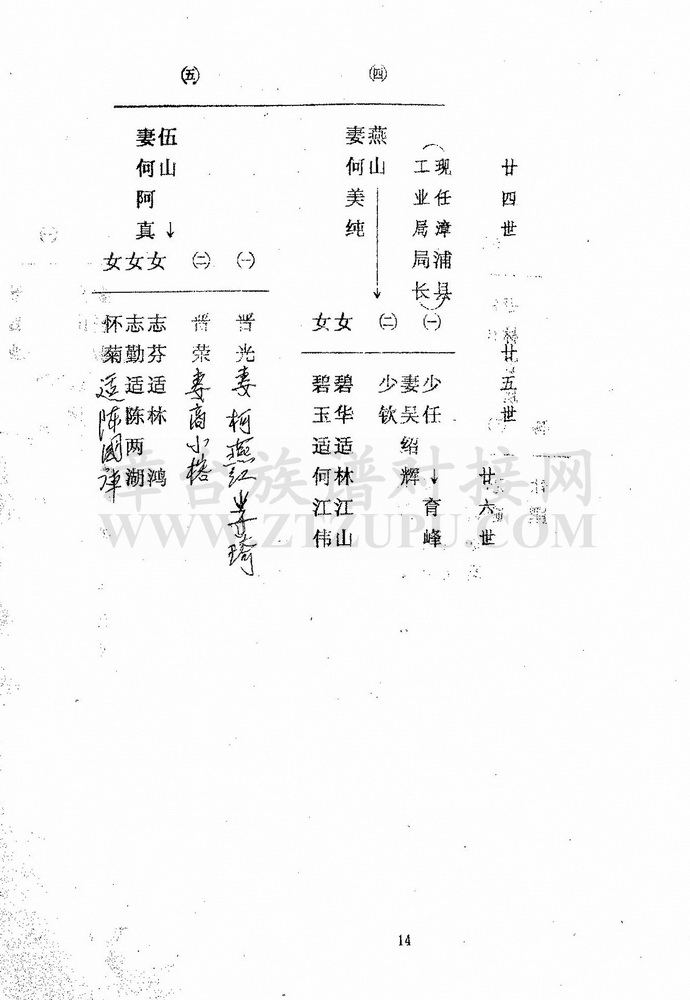 ㈣
㈤
廿四世
廿五世
廿六世
(现任漳浦县
工业局局长)
燕山
妻何美纯
伍山
妻何阿真
㈠
㈡
女
女
㈠
㈡
女
女
女
少任 育峰
妻吴绍辉
少钦
碧华适林江山
碧玉适何江伟
晋光妻柯燕红
晋荣妻高小榕
志芬适林鸿
志勤适陈两湖
怀菊适陈国
华台族谱对接网
WWW.ZTZUPU.COM
14